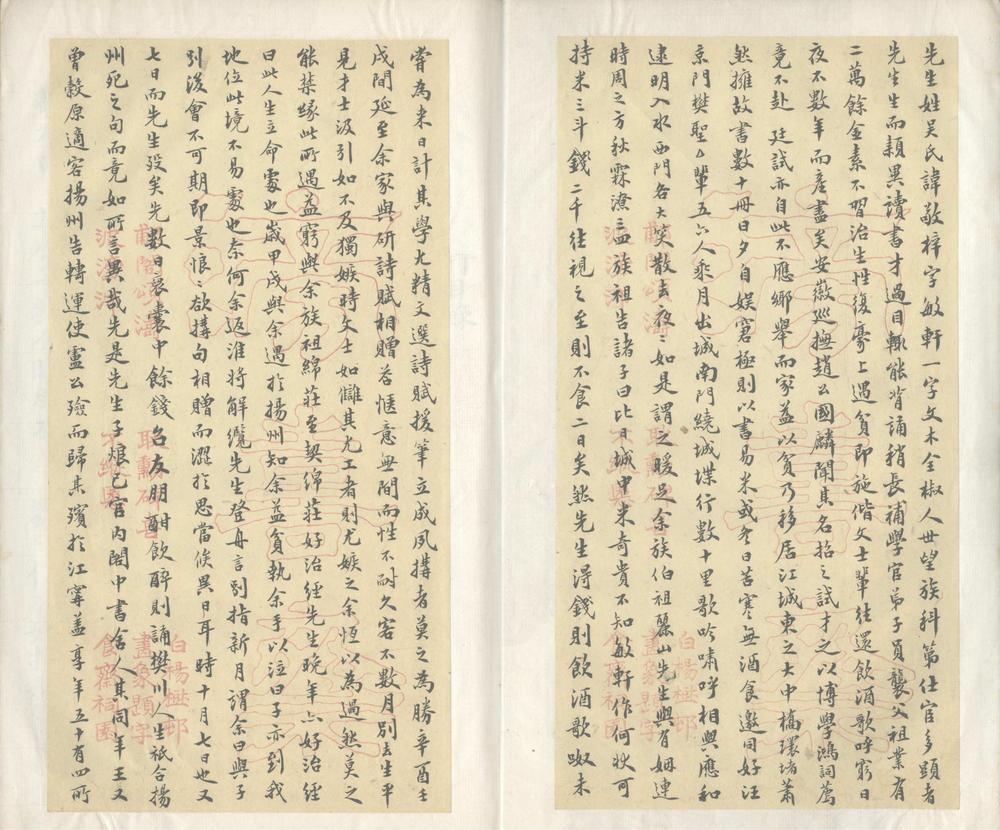 先生姓吳氏諱敬梓字敏軒一字文木全椒人世望族科第仕宦多顯者
先生生而穎異讀書才過目輒能背誦稍長補學官弟子員襲父祖業有
二萬餘金素不習治生性復豪上遇貧即施偕文士輩往還飲酒歌呼窮日
夜不數年而產盡矣安徽巡撫趙公國麟聞其名招之試才之以博學鴻詞薦
竟不赴廷試亦自此不應鄉舉而家益以貧乃移居江城東之大中橋環堵蕭
然擁故書數十冊日夕自娛窘極則以書易米或冬日苦寒無酒食邀同好汪
京門樊聖厶輩五六人乘月出城南門繞城堞行數十里歌吟嘯呼相與應和
逮明入水西門各大笑散去夜〻如是謂之暖足余族伯祖麗山先生與有姻連
時周之方秋霖潦族祖告諸子曰比日城中米奇貴不知敏軒作何狀可
持米三斗錢二千往視之至則不食二日矣然先生得錢則飲酒歌呶未
嘗為來日計其學尤精文選詩賦援筆立成夙搆者莫之為勝辛酉壬
戌間延至余家與研詩賦相贈荅愜意無間而性不耐久客不數月別去生平
見才士汲引如不及獨嫉時文士如讎其尤工者則尤嫉之余恆以為過然莫之
能禁緣此所遇益窮與余族祖綿莊至契綿莊好治經先生晚年亦好治經
曰此人生立命處也歲甲戌與余遇於揚州知余益貧執余手以泣曰子亦到我
地位此境不易處也奈何余返淮將解纜先生登舟言別指新月謂余曰與子
別後會不可期即景悢〻欲搆句相贈而澀於思當俟異日耳時十月七日也又
七日而先生歿矣先數日裒囊中餘錢召友朋酣飲醉則誦樊川人生衹合揚
州死之句而竟如所言異哉先是先生子烺已官內閣中書舍人其同年王又
曾轂原適客揚州告轉運使盧公殮而歸其殯於江寧蓋享年五十有四所